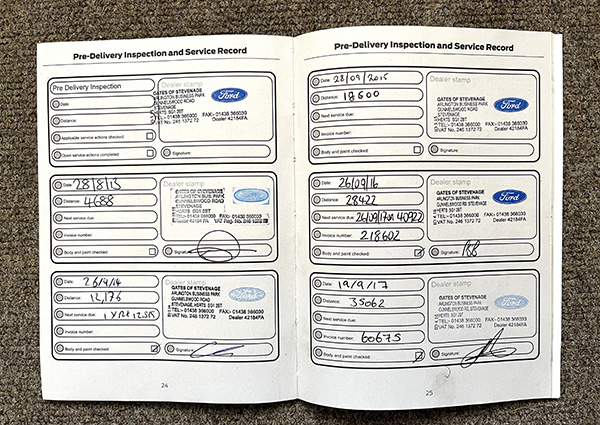 Pre-Delivery Inspection and Service Record
Pre Delivery Inspection
Date:
Distance:
Applicable service actions checked:
Open service actions completed:
Dealer stamp
GATES OF STEVENAGE
ARLINGTON BUSINESS PARK
GUNNELSWOOD ROAD
STEVENAGE
HERTS SG1 2BT
TEL:- 01438 366030 FAX:- 01438 366030
VAT No. 246 1372 72 Dealer 42184FA
Ford
Signature:
Date: 28/8/13
Distance: 4688
Next service due:
Invoice number:
Body and paint checked:
Dealer stamp
GATES OF STEVENAGE
ARLINGTON BUS. PARK
GUNNELSWOOD ROAD
STEVENAGE
HERTS SG1 2BT
Signature:
Date: 26/9/14
Distance: 12,176
Next service due:
Invoice number:
Body and paint checked:
Dealer stamp
GATES OF STEVENAGE
ARLINGTON BUSINESS PARK
GUNNELSWOOD ROAD
STEVENAGE, HERTS SG1 2BT
TEL:- 01438 366030 FAX:- 01438 366030
VAT No. 246 1372 72 Dealer 42184FA
Signature:
24
Pre-Delivery Inspection and Service Record
Date: 28/09/2015
Distance: 18600
Next service due:
Invoice number:
Body and paint checked:
Dealer stamp
GATES OF STEVENAGE
ARLINGTON BUSINESS PARK
GUNNELSWOOD ROAD
STEVENAGE
HERTS SG1 2BT
TEL:- 01438 366030 FAX:- 01438 366030
VAT No. 246 1372 72 Dealer 42184FA
Ford
Signature:
Date: 26/09/16
Distance: 28422
Next service due: 26/09/17 on 40922
Invoice number: 218602
Body and paint checked:
Dealer stamp
GATES OF STEVENAGE
ARLINGTON BUSINESS PARK
GUNNELSWOOD ROAD
STEVENAGE
HERTS SG1 2BT
TEL:- 01438 366030 FAX:- 01438 366030
VAT No. 246 1372 72 Dealer 42184FA
Ford
Signature:
Date: 19/9/17
Distance: 35062
Next service due:
Invoice number: 60675
Body and paint checked:
Dealer stamp
GATES OF STEVENAGE
ARLINGTON BUSINESS PARK
GUNNELSWOOD ROAD
STEVENAGE, HERTS SG1 2BT
TEL:- 01438 366030 FAX:- 01438 366030
VAT No. 246 1372 72 Dealer 42184FA
Signature:
25